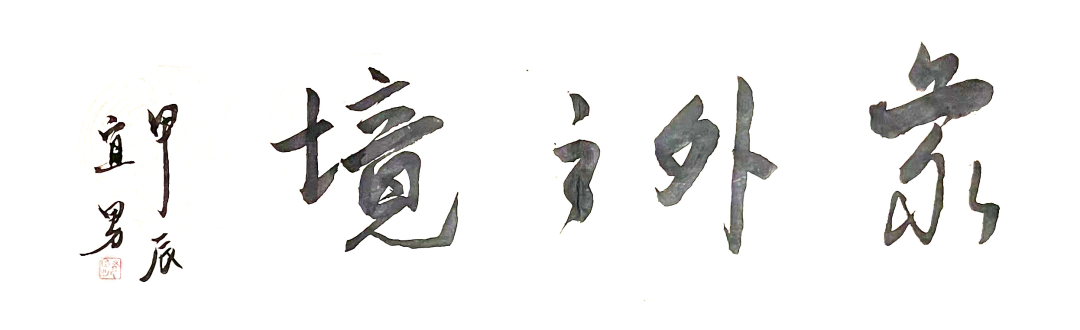 象外之境
甲辰
宜男